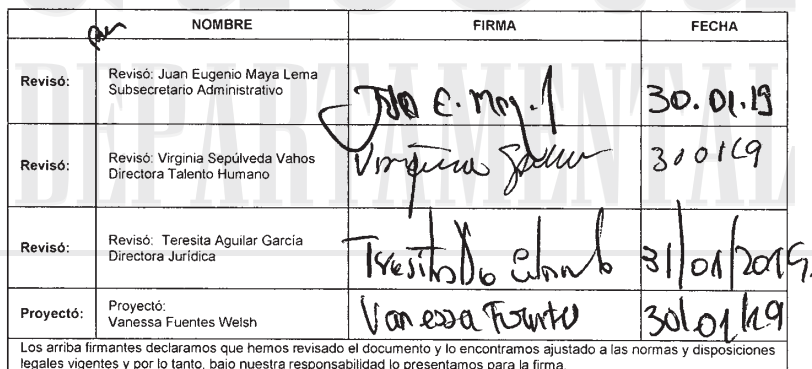 NOMBRE FIRMA FECHA
Revisó: Revisó: Juan Eugenio Maya Lema
Subsecretario Administrativo
E. 30.01.19
Revisó: Revisó: Virginia Sepúlveda Vahos
Directora Talento Humano
Virginia 300119
Revisó: Revisó: Teresita Aguilar García
Directora Jurídica
31/01/2019
Proyectó: Proyectó:
Vanessa Fuentes Welsh
Vanessa 30/01/19
Los arriba firmantes declaramos que hemos revisado el documento y lo encontramos ajustado a las normas y disposiciones
legales vigentes y por lo tanto, bajo nuestra responsabilidad lo presentamos para la firma.
DEPARTAMENTAL